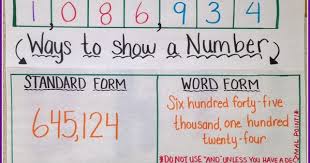 1,086,934
Ways to show a Number
STANDARD FORM
645,124
WORD FORM
Six hundred forty-five
thousand, one hundred
twenty-four
*DO NOT USE "AND" UNLESS YOU HAVE A DECIMAL POINT!*